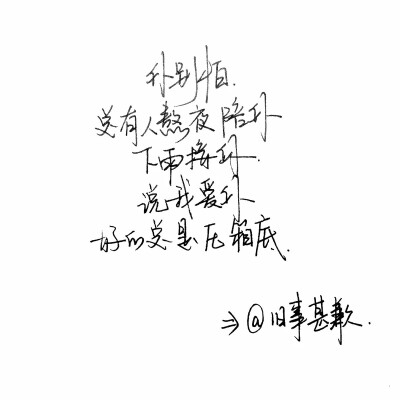 你别怕.
总有人熬夜陪你
下雨接你.
说我爱你
好的总是压箱底.
⇒@旧事甚歉.